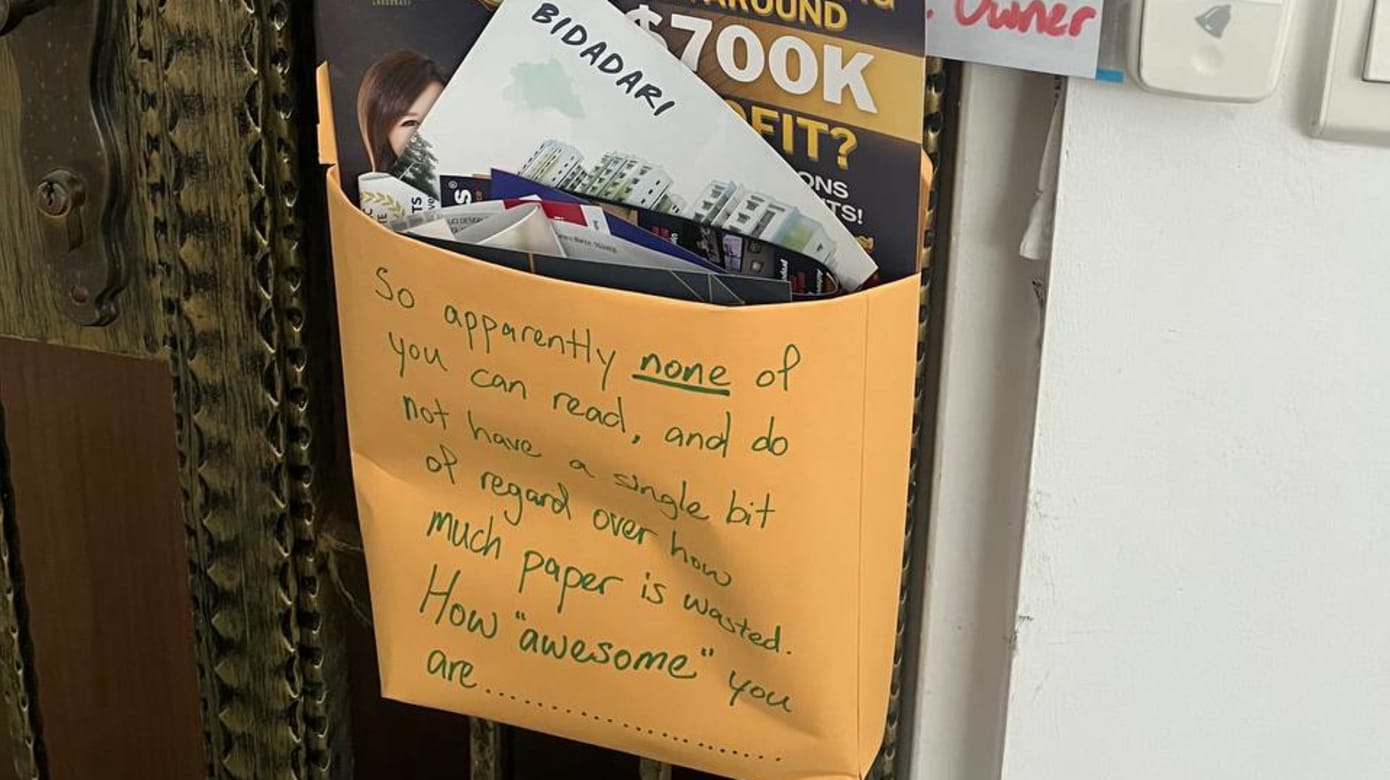 AROUND
$700K
FIT?
ONS
TS!
. Owner
BIDADARI
So apparently none of
you can read, and do
not have a single bit
of regard over how
much paper is wasted.
How "awesome" you
are...............................